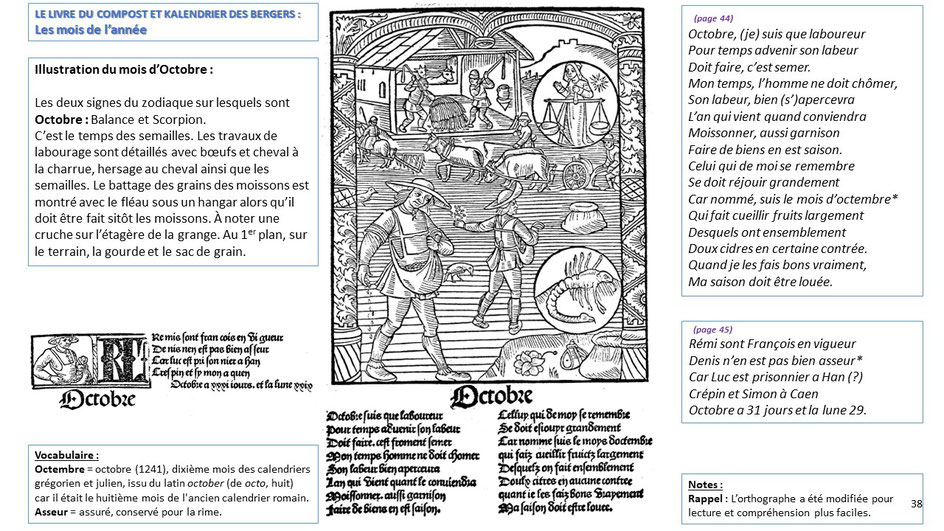 LE LIVRE DU COMPOST ET KALENDRIER DES BERGERS :
Les mois de l'année
Illustration du mois d'Octobre :
Les deux signes du zodiaque sur lesquels sont
Octobre : Balance et Scorpion.
C'est le temps des semailles. Les travaux de
labourage sont détaillés avec bœufs et cheval à
la charrue, hersage au cheval ainsi que les
semailles. Le battage des grains des moissons est
montré avec le fléau sous un hangar alors qu'il
doit être fait sitôt les moissons. À noter une
cruche sur l'étagère de la grange. Au 1er plan, sur
le terrain, la gourde et le sac de grain.
RE mis sont fran cois en Vi gueur
De nis nen est pas bien as seur
Car luc est pri son nier a han
Cres pin et sy mon a quen
Octobre a xxxi iours. et la lune xxix
Octobre
Vocabulaire :
Octembre = octobre (1241), dixième mois des calendriers
grégorien et julien, issu du latin october (de octo, huit)
car il était le huitième mois de l'ancien calendrier romain.
Asseur = assuré, conservé pour la rime.
Octobre
Octobre suis que laboureur
Pour temps advenir son labeur
Doit faire. cest froment semer
Mon temps homme ne doit chomer
Son labeur bien apercevra
Lan qui vient quant le conviendra
Moissonner. aussi garnison
Faire de biens en est saison.
Celluy qui de moy se remembre
Se doit esiouyr grandement
Car nomme suis le moys doctembre
qui faiz cueillir fruictz largement
Desquelz on fait ensemblement
Doulx cidres en aucune contree
quant ie les faiz bons Vrayement
Ma saison doit estre louee.
(page 44)
Octobre, (je) suis que laboureur
Pour temps advenir son labeur
Doit faire, c'est semer.
Mon temps, l'homme ne doit chômer,
Son labeur, bien (s')apercevra
L'an qui vient quand conviendra
Moissonner, aussi garnison
Faire de biens en est saison.
Celui qui de moi se remembre
Se doit réjouir grandement
Car nommé, suis le mois d'octembre*
Qui fait cueillir fruits largement
Desquels ont ensemblement
Doux cidres en certaine contrée.
Quand je les fais bons vraiment,
Ma saison doit être louée.
(page 45)
Rémi sont François en vigueur
Denis n'en est pas bien asseur*
Car Luc est prisonnier a Han (?)
Crépin et Simon à Caen
Octobre a 31 jours et la lune 29.
Notes :
Rappel : L'orthographe a été modifiée pour
lecture et compréhension plus faciles.
38